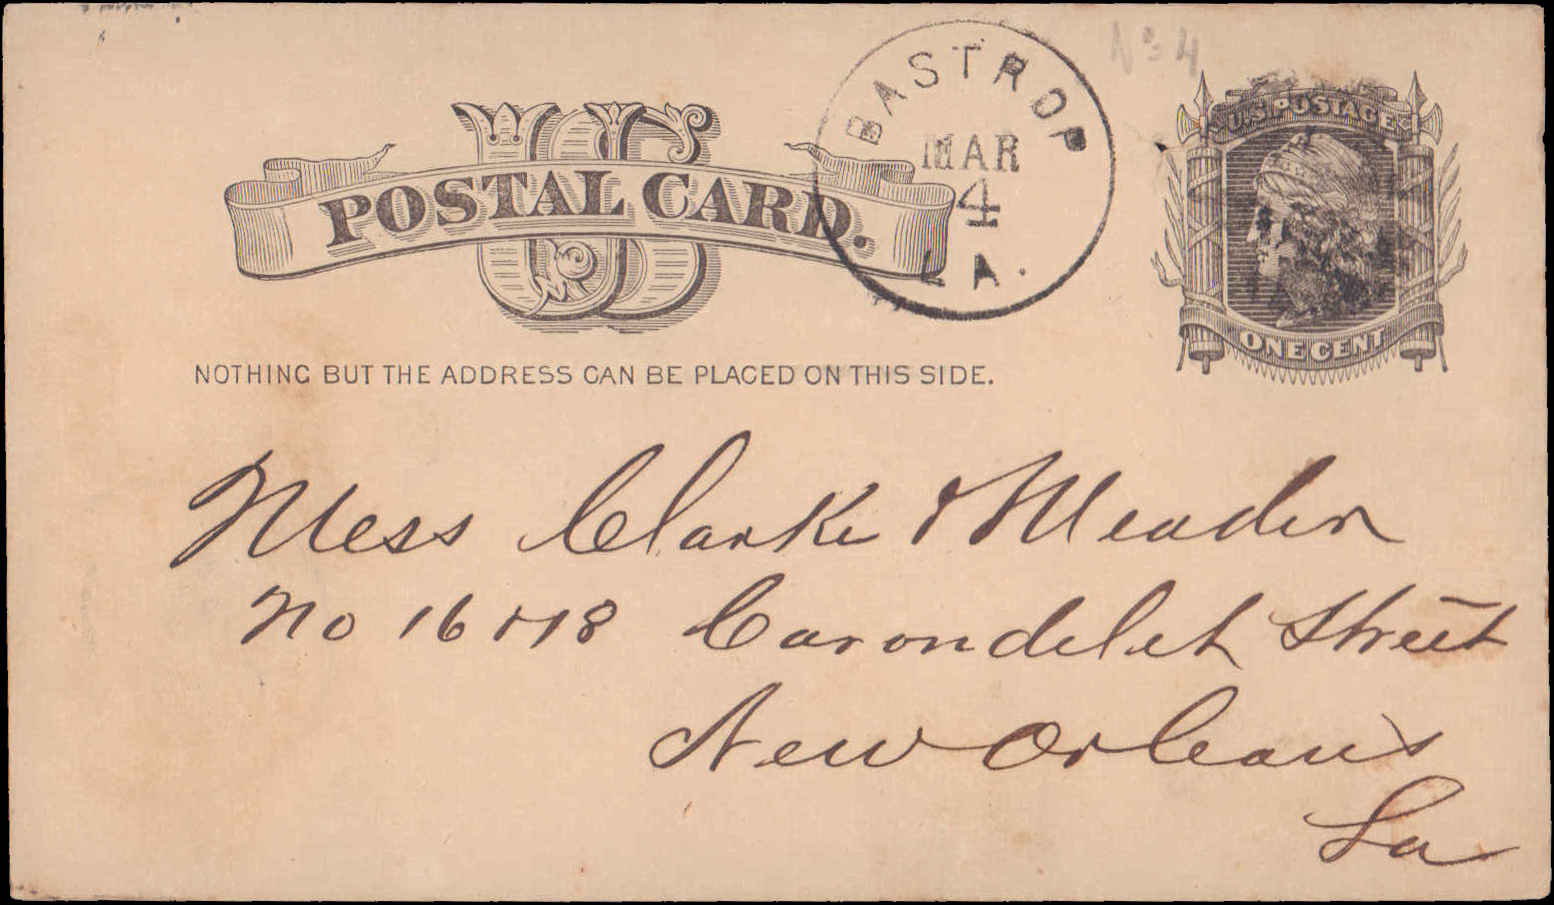 No 4
U.S. POSTAGE
ONE CENT
BASTROP
MAR
4
LA.
US
POSTAL CARD.
NOTHING BUT THE ADDRESS CAN BE PLACED ON THIS SIDE.
Mess Clarke & Meader
No 16 & 18 Carondelet Street
New Orleans
La